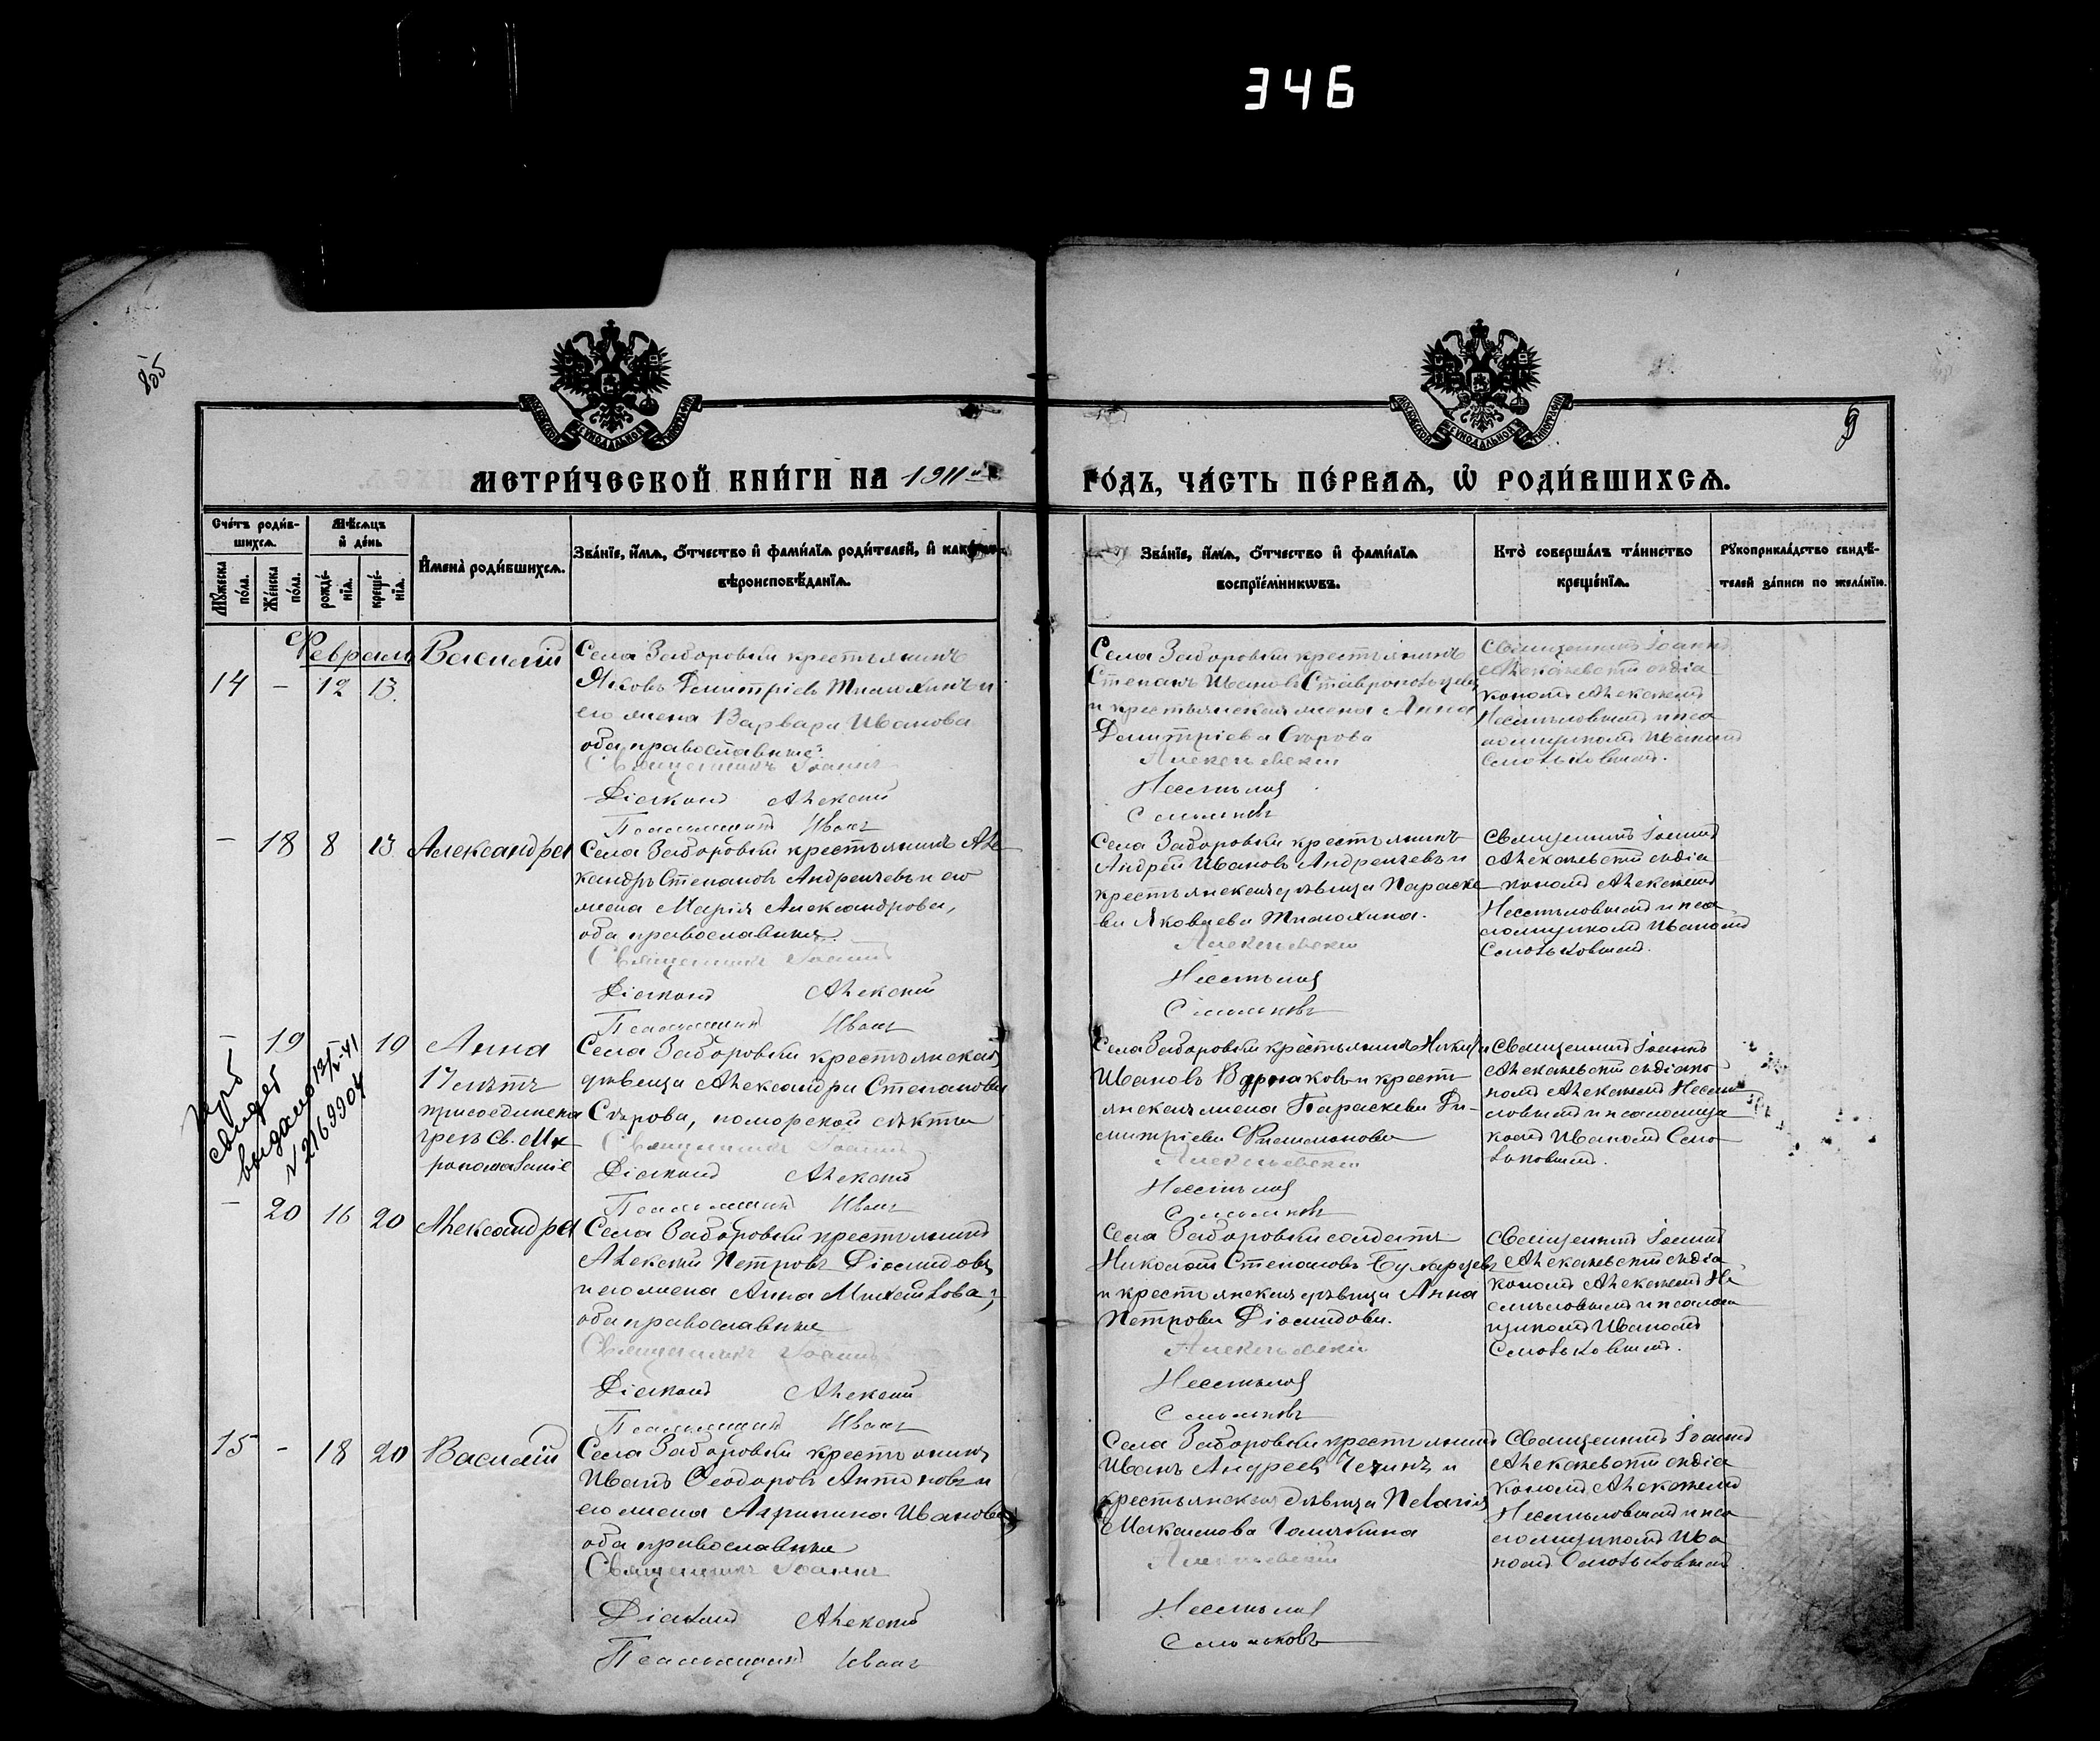 346
855
9
МОСКОВСКОЙ СѴНОДАЛЬНОЙ ТИПОГРАФІИ
МОСКОВСКОЙ СѴНОДАЛЬНОЙ ТИПОГРАФІИ
МЕТРИ́ЧЕСКОЙ КНИ́ГИ НА 1911й
ГО́ДЪ, ЧА́СТЬ ПЕ́РВАѦ, Ѡ҆ РОДИ́ВШИХСѦ.
Сче́тъ роди́в-
шихсѧ.
Мѣ́сѧцъ
и҆ де́нь
Мꙋ́жеска по́ла.
Же́нска по́ла.
рожде́-нїѧ.
креще́-нїѧ.
И҆мена̀ роди́вшихсѧ.
Зва́нїе, и҆́мѧ, ѻ҆́тчество и҆ фами́лїѧ роди́телей, и҆ како́гѡ
вѣроисповѣ́данїѧ.
Зва́нїе, и҆́мѧ, ѻ҆́тчество и҆ фами́лїѧ
воспрїе́мникѡвъ.
Кто̀ соверша́лъ та́инство
креще́нїѧ.
Рꙋкоприкла́дство свидѣ́-
телей за́писи по жела́нїю.
Февраль
14 - 12 13. Василій
Села Заборовки крестьянинъ
Яковъ Димитріевъ Тимохинъ и
его жена Варвара Иванова
оба православные.
Священникъ Іоаннъ
Діаконъ Алексій
Псаломщикъ Иванъ
Села Заборовки крестьянинъ
Степанъ Ивановъ
и крестьянская жена Анна
Димитріева Сѣрова
Алексѣевскій
Несмѣловъ
Смольковъ
Священникъ Іоаннъ
Алексѣевскій съ діа
кономъ Алексіемъ
Несмѣловымъ и пса
ломщикомъ Иваномъ
Смольковымъ.
- 18 8 13 Александра
Села Заборовки крестьянинъ Але
ксандръ Степановъ Андреичевъ и его
жена Марія Александрова,
оба православные.
Священникъ Іоаннъ
Діаконъ Алексій
Псаломщикъ Иванъ
Села Заборовки крестьянинъ
Андрей Ивановъ Андреичевъ и
крестьянская дѣвица Параске
ва Яковлева Тимохина.
Алексѣевскій
Несмѣловъ
Смольковъ
Священникъ Іоаннъ
Алексѣевскій съ діа
кономъ Алексіемъ
Несмѣловымъ и пса
ломщикомъ Иваномъ
Смольковымъ.
- 19 19 Анна
17 лѣтъ
присоединена
чрезъ св. Мѵ
ропомазаніе
выдано 12/I-41
№2169904
Села Заборовки крестьянская
дѣвица Александра Степанова
Сѣрова, поморской секты
Священникъ Іоаннъ
Діаконъ Алексій
Псаломщикъ Иванъ
Села Заборовки крестьянинъ Никита
Ивановъ и кресть
янская жена Параскева Ди-
митріева
Алексѣевскій
Несмѣловъ
Смольковъ
Священникъ Іоаннъ
Алексѣевскій съ діако
номъ Алексіемъ Несмѣ
ловымъ и псаломщи
комъ Иваномъ Смо
льковымъ.
- 20 16 20 Александра
Села Заборовки крестьянинъ
Алексій Петровъ Діомидовъ
и его жена Анна Михайлова,
оба православные
Священникъ Іоаннъ
Діаконъ Алексій
Псаломщикъ Иванъ
Села Заборовки солдатъ
Николай Степановъ
и крестьянская дѣвица Анна
Петрова Діомидова.
Алексѣевскій
Несмѣловъ
Смольковъ
Священникъ Іоаннъ
Алексѣевскій съ діа
кономъ Алексіемъ Не
смѣловымъ и псалом
щикомъ Иваномъ
Смольковымъ.
15 - 18 20 Василій
Села Заборовки крестьянинъ
Иванъ Ѳеодоровъ Антиповъ и
его жена Агрипина Иванова
оба православные
Священникъ Іоаннъ
Діаконъ Алексій
Псаломщикъ Иванъ
Села Заборовки крестьянинъ
Иванъ Андреевъ и
крестьянская дѣвица Пелагія
Максимова
Алексѣевскій
Несмѣловъ
Смольковъ
Священникъ Іоаннъ
Алексѣевскій съ діа
кономъ Алексіемъ
Несмѣловымъ и пса
ломщикомъ Ива
номъ Смольковымъ.